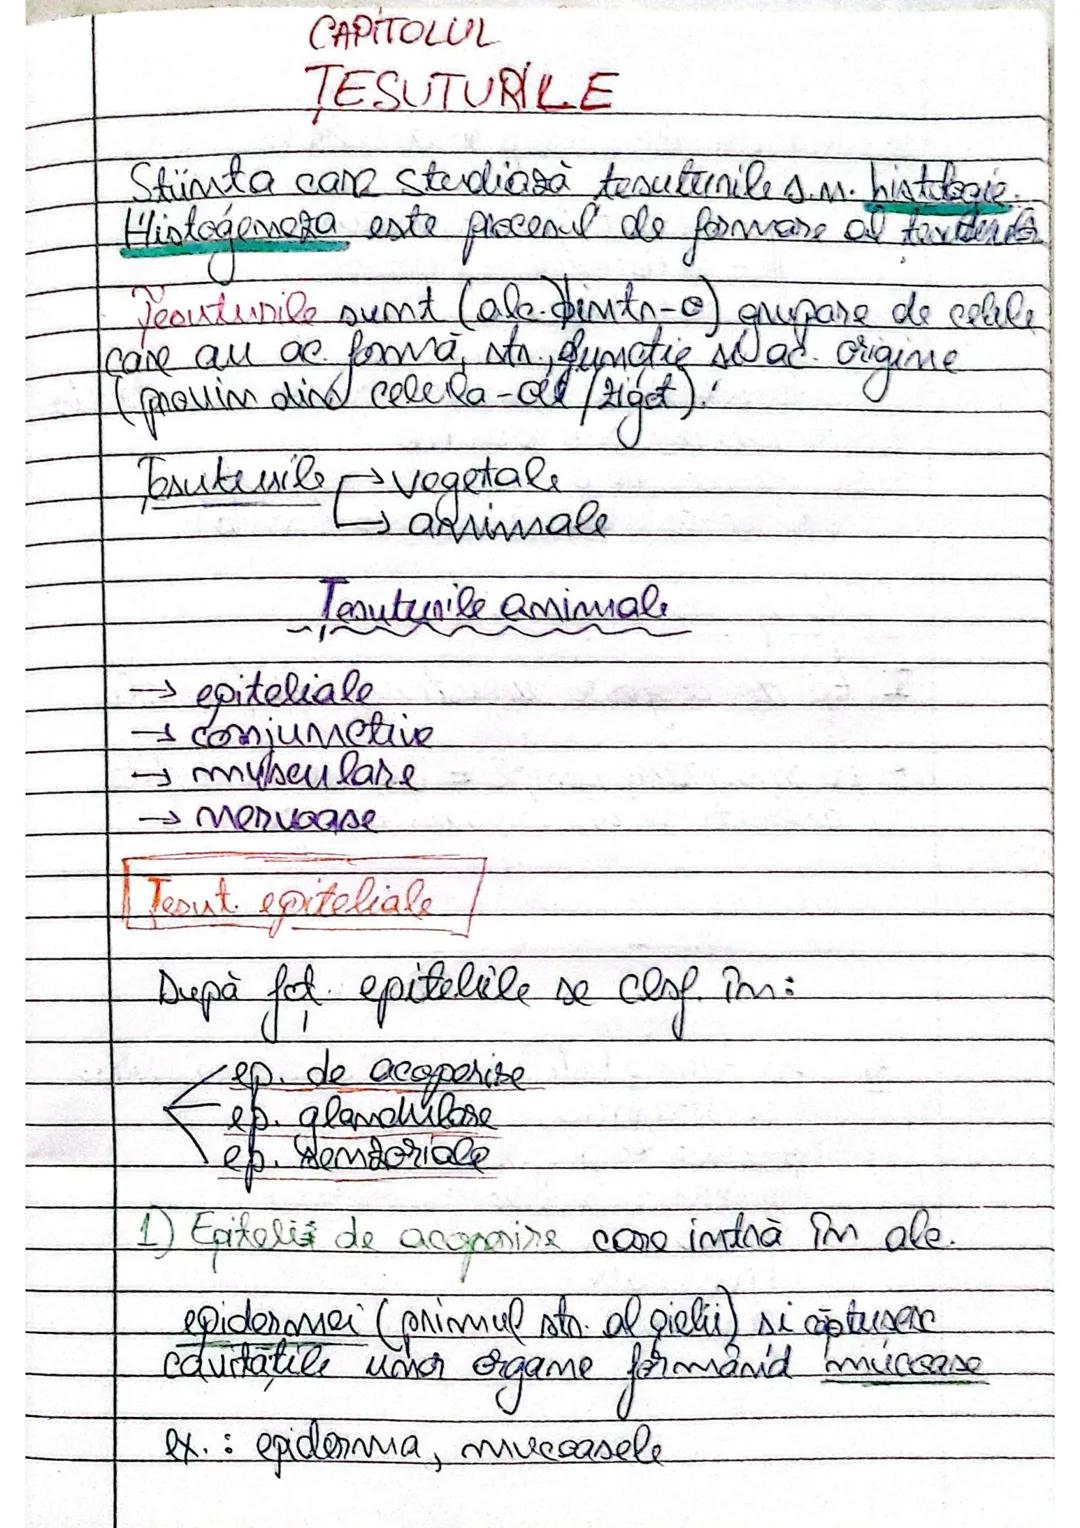 CAPITOLUL
ȚESUTURILE
Știința care studiază țesuturile s.n. histologie.
Histogeneza este procesul de formare al țesuturilor
Țesuturile sunt (alc. dintr-o) grupare de celule
care au ac. formă, str., funcție și ac. origine
(provin din celula-ou / zigot).
Țesuturile → vegetale
→ animale
Țesuturile animale
→ epiteliale
→ conjunctive
→ musculare
→ nervoase
Țesut. epiteliale
După fcț. epiteliile se clsf. în:
ep. de acoperire
ep. glandulare
ep. senzoriale
1) Epitelii de acoperire care intră în alc.
epidermei (primul str. al pielii) si căptusesc
cavitățile unor organe formând mucoase
ex.: epiderma, mucoasele